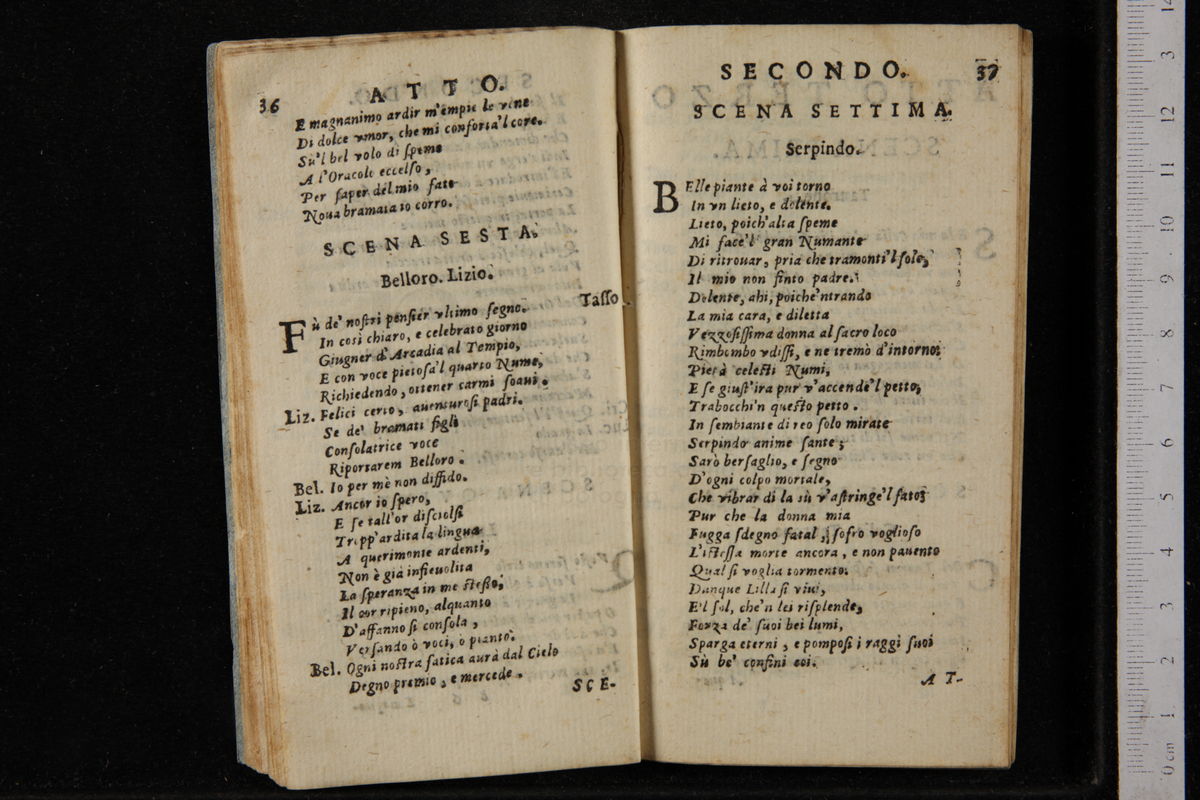 36
ATTO.
E magnanimo ardir m'empie le vene
Di dolce amor, che mi conforta'l core.
Su'l bel volo di ſpeme
A l'Oracolo eccelſo,
Per ſaper del mio fato
Noua bramata io corro.
SCENA SESTA.
Belloro. Lizio.
Taſſo
Fù de' noſtri penſier vltimo ſegno.
In così chiaro, e celebrato giorno
Giugner d'Arcadia al Tempio,
E con voce pietoſa'l quarto Nume,
Richiedendo, ottener carmi ſoaui.
Liz. Felici certo, auenturoſi padri.
Se de' bramati figli
Conſolatrice voce
Riportarem Belloro.
Bel. Io per mè non diffido.
Liz. Ancor io ſpero,
E ſe tall'or diſciolſi
Tropp'ardita la lingua
A querimonie ardenti,
Non è già infieuolita
La ſperanza in me ſteſſo,
Il cor ripieno, alquanto
D'affanno ſi conſola,
Verſando ò voci, ò pianto.
Bel. Ogni noſtra fatica aurà dal Cielo
Degno premio, e mercede.
SCE-
SECONDO. 37
SCENA SETTIMA.
Serpindo.
BElle piante à voi torno
In vn lieto, e dolente.
Lieto, poich'alta ſpeme
Mi face'l gran Numante
Di ritrouar, pria che tramonti'l ſole,
Il mio non finto padre.
Dolente, ahi, poiche'ntrando
La mia cara, e diletta
Vezzoſiſſima donna al ſacro loco
Rimbombo vdiſſi, e ne tremò d'intorno;
Pietà celeſti Numi,
E ſe giuſt'ira pur v'accende'l petto,
Trabocchi'n queſto petto.
In ſembiante di reo ſolo mirate
Serpindo anime ſante;
Sarò berſaglio, e ſegno
D'ogni colpo mortale,
Che vibrar di la sù v'aſtringe'l fato;
Pur che la donna mia
Fugga ſdegno fatal, ſofro voglioſo
L'iſteſſa morte ancora, e non pauento
Qual ſi voglia tormento.
Dunque Lilla ſi viui,
E'l ſol, che'n lei riſplende,
Forza de' ſuoi bei lumi,
Sparga eterni, e pompoſi i raggi ſuoi
Sù be' confini eoi.
AT-